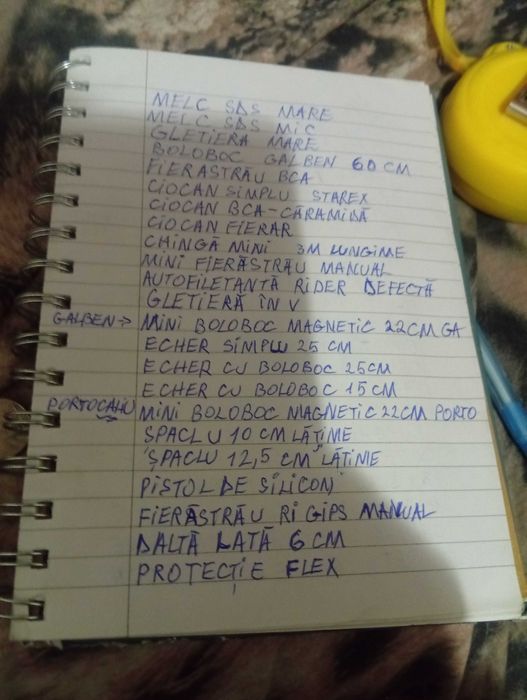 MELC SDS MARE
MELC SDS MIC
GLETIERA MARE
BOLOBOC GALBEN 60 CM
FIERASTRĂU BCA
CIOCAN SIMPLU STAREX
CIOCAN BCA-CĂRAMIDĂ
CIOCAN FIERAR
CHINGĂ MINI 3M LUNGIME
MINI FIERĂSTRĂU MANUAL
AUTOFILETANTĂ RIDER DEFECTĂ
GLETIERĂ ÎN V
GALBEN → MINI BOLOBOC MAGNETIC 22CM GA
ECHER SIMPLU 25 CM
ECHER CU BOLOBOC 25CM
ECHER CU BOLOBOC 15CM
PORTOCALIU MINI BOLOBOC MAGNETIC 22CM PORTO
SPACLU 10 CM LĂȚIME
ȘPACLU 12,5 CM LĂȚIME
PISTOL DE SILICON
FIERĂSTRĂU RIGIPS MANUAL
DALTĂ LATĂ 6 CM
PROTECȚIE FLEX